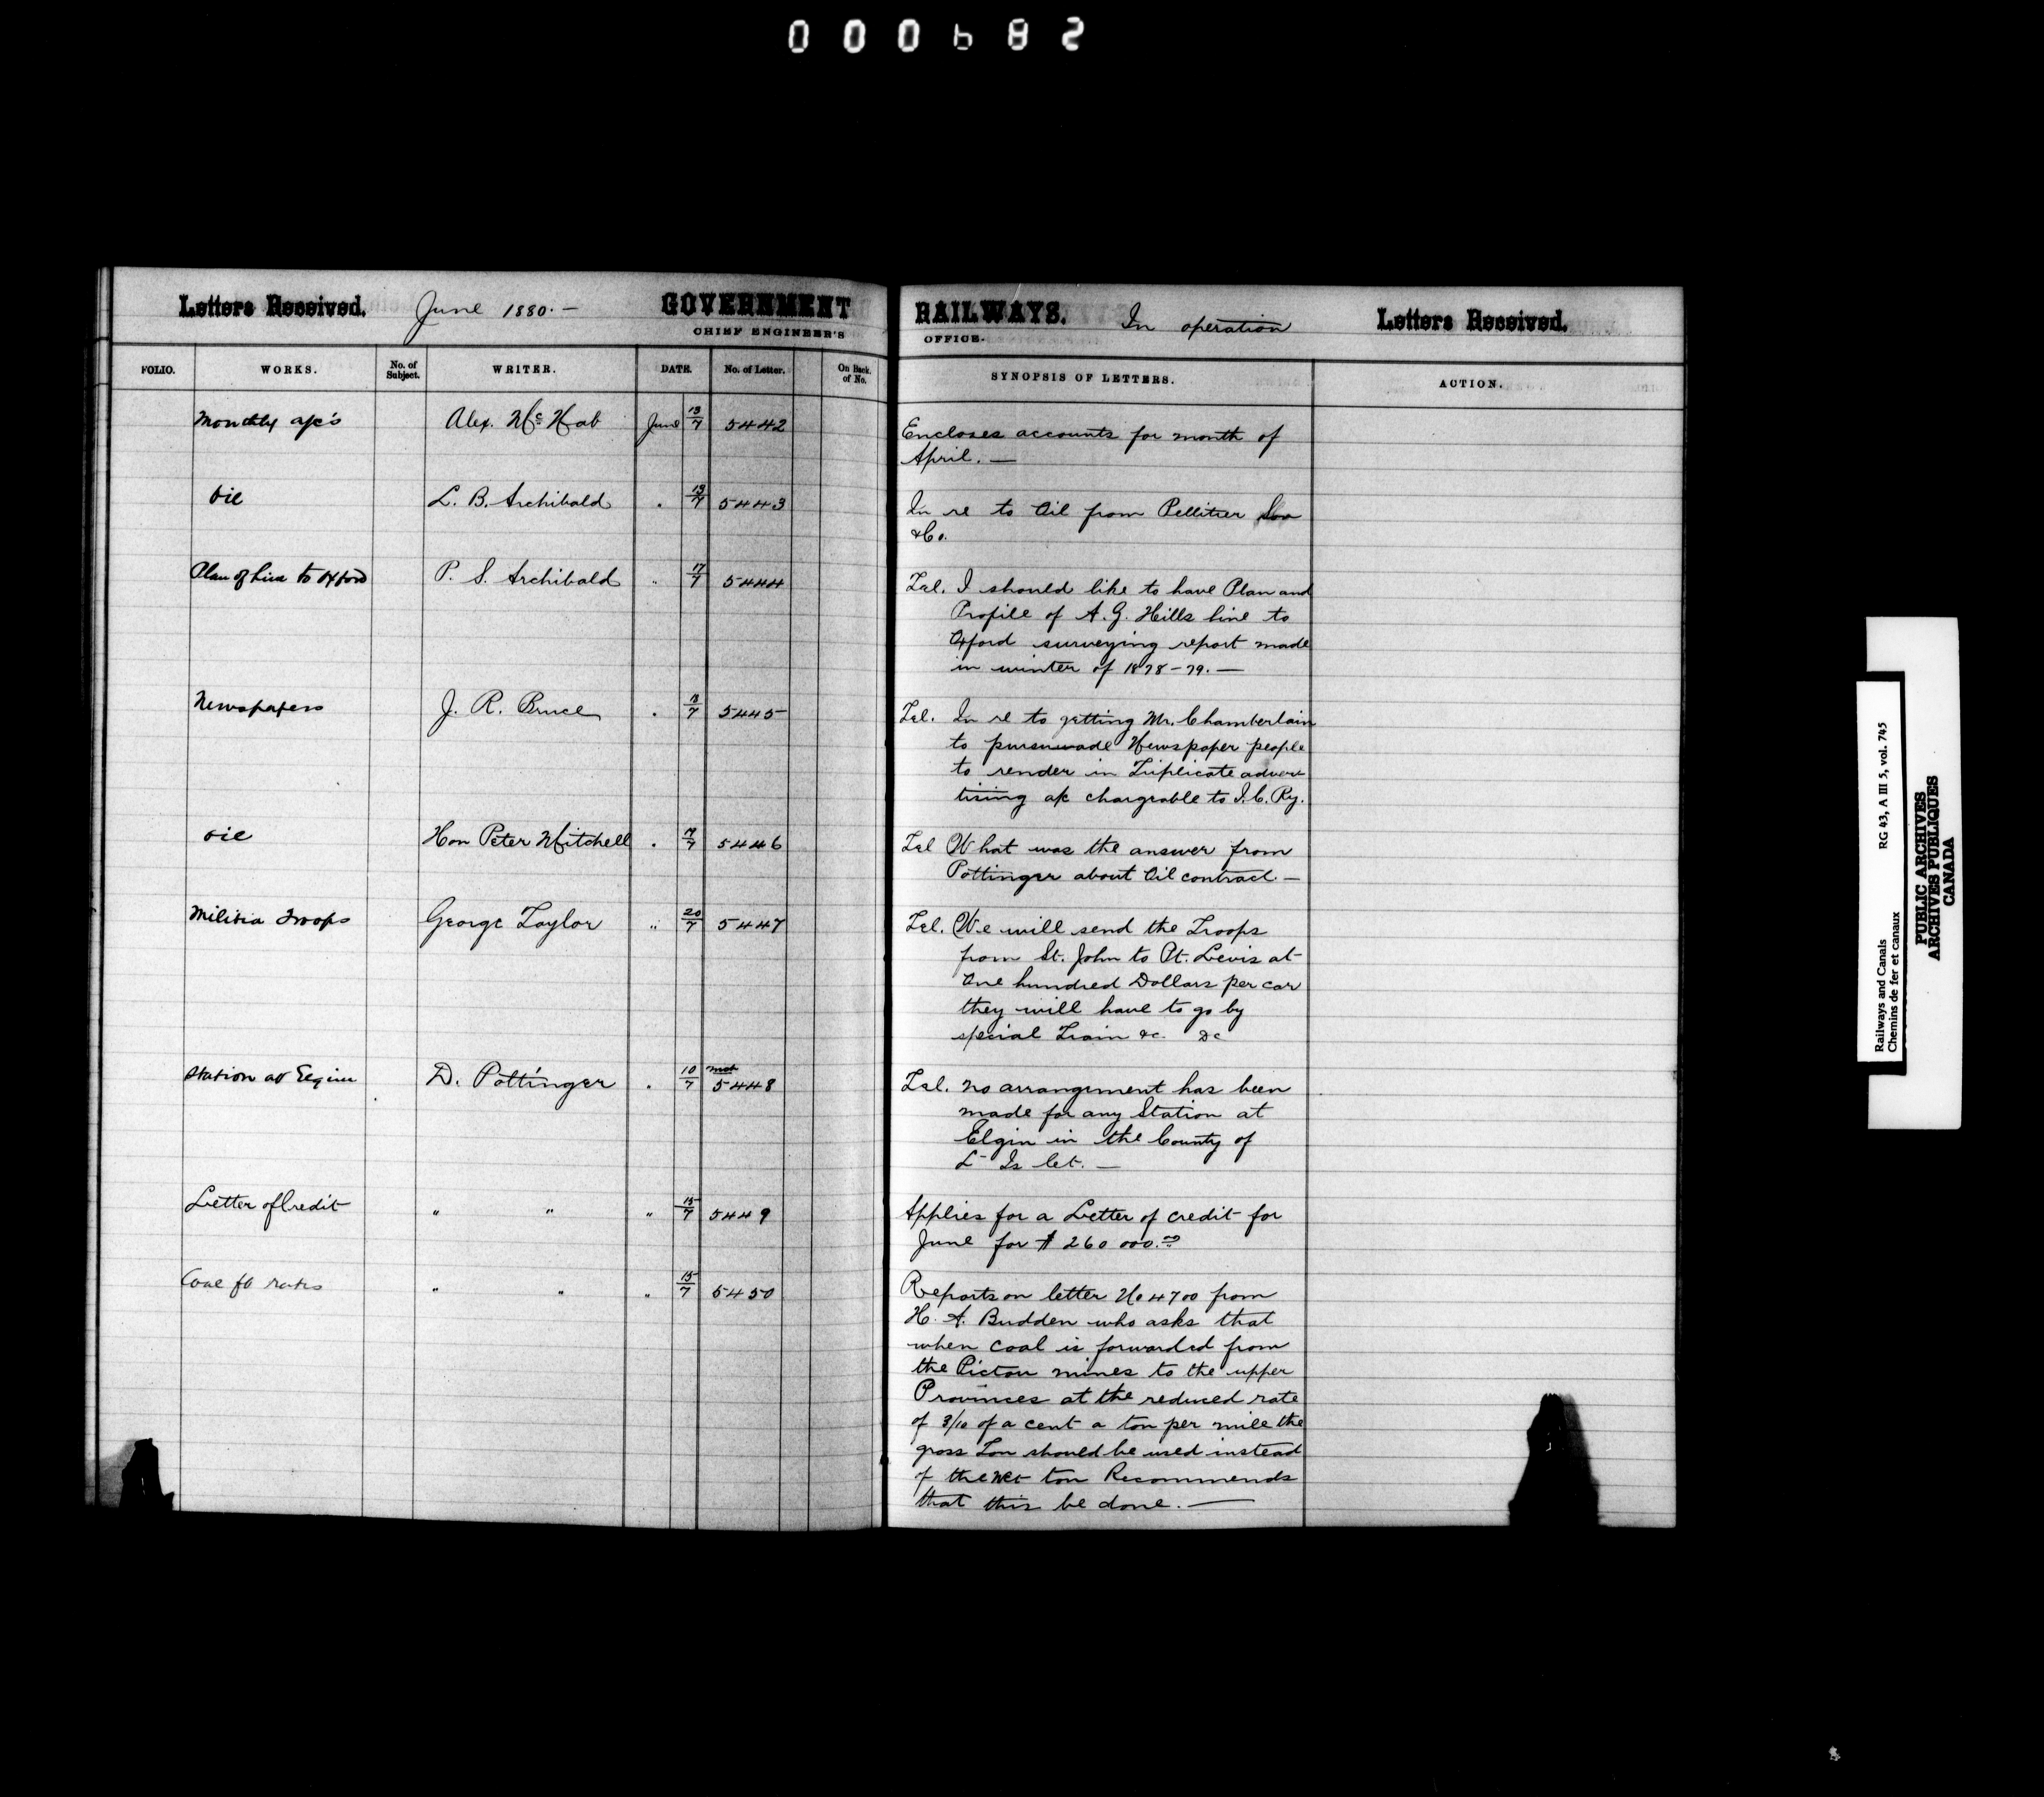 000682
Letters Received. June 1880.— GOVERNMENT
CHIEF ENGINEER'S
FOLIO. WORKS. No. of Subject. WRITER. DATE. No. of Letter. On Back of No.
Monthly a/c's Alex. McNab June 13/7 5442
Oil L. B. Archibald " 13/7 5443
Plan of line to Oxford P. S. Archibald " 17/7 5444
Newspapers J. R. Bruce " 5445
Oil Hon Peter Mitchell " 5446
Militia Troops George Taylor " 20/7 5447
Station at Elgin D. Pottinger " 10/7 5448
Letter of Credit " " " 15/7 5449
Coal ft rates " " " 15/7 5450
RAILWAYS. In operation Letters Received.
OFFICE.
SYNOPSIS OF LETTERS. ACTION.
Encloses accounts for month of
April. —
In re to Oil from Pellitier
& Co.
Tel. I should like to have Plan and
Profile of A. G. Hills line to
Oxford surveying report made
in winter of 1878-79. —
Tel. In re to getting Mr. Chamberlain
to Newspaper people
to render in Triplicate adver
tising a/c chargeable to I. C. Ry.
Tel What was the answer from
Pottinger about Oil contract. —
Tel. We will send the Troops
from St. John to Pt. Levis at
One hundred Dollars per car
they will have to go by
special Train &c. &c
Tel. no arrangement has been
made for any Station at
Elgin in the County of
L' Is let. —
Applies for a Letter of credit for
June for $260 000.00
Reports on letter No 4700 from
H. A. Budden who asks that
when coal is forwarded from
the Pictou mines to the upper
Provinces at the reduced rate
of 3/10 of a cent a ton per mile the
gross Ton should be used instead
of the net ton Recommends
that this be done. —
Railways and Canals RG 43, A III 5, vol. 745
Chemins de fer et canaux
PUBLIC ARCHIVES
ARCHIVES PUBLIQUES
CANADA